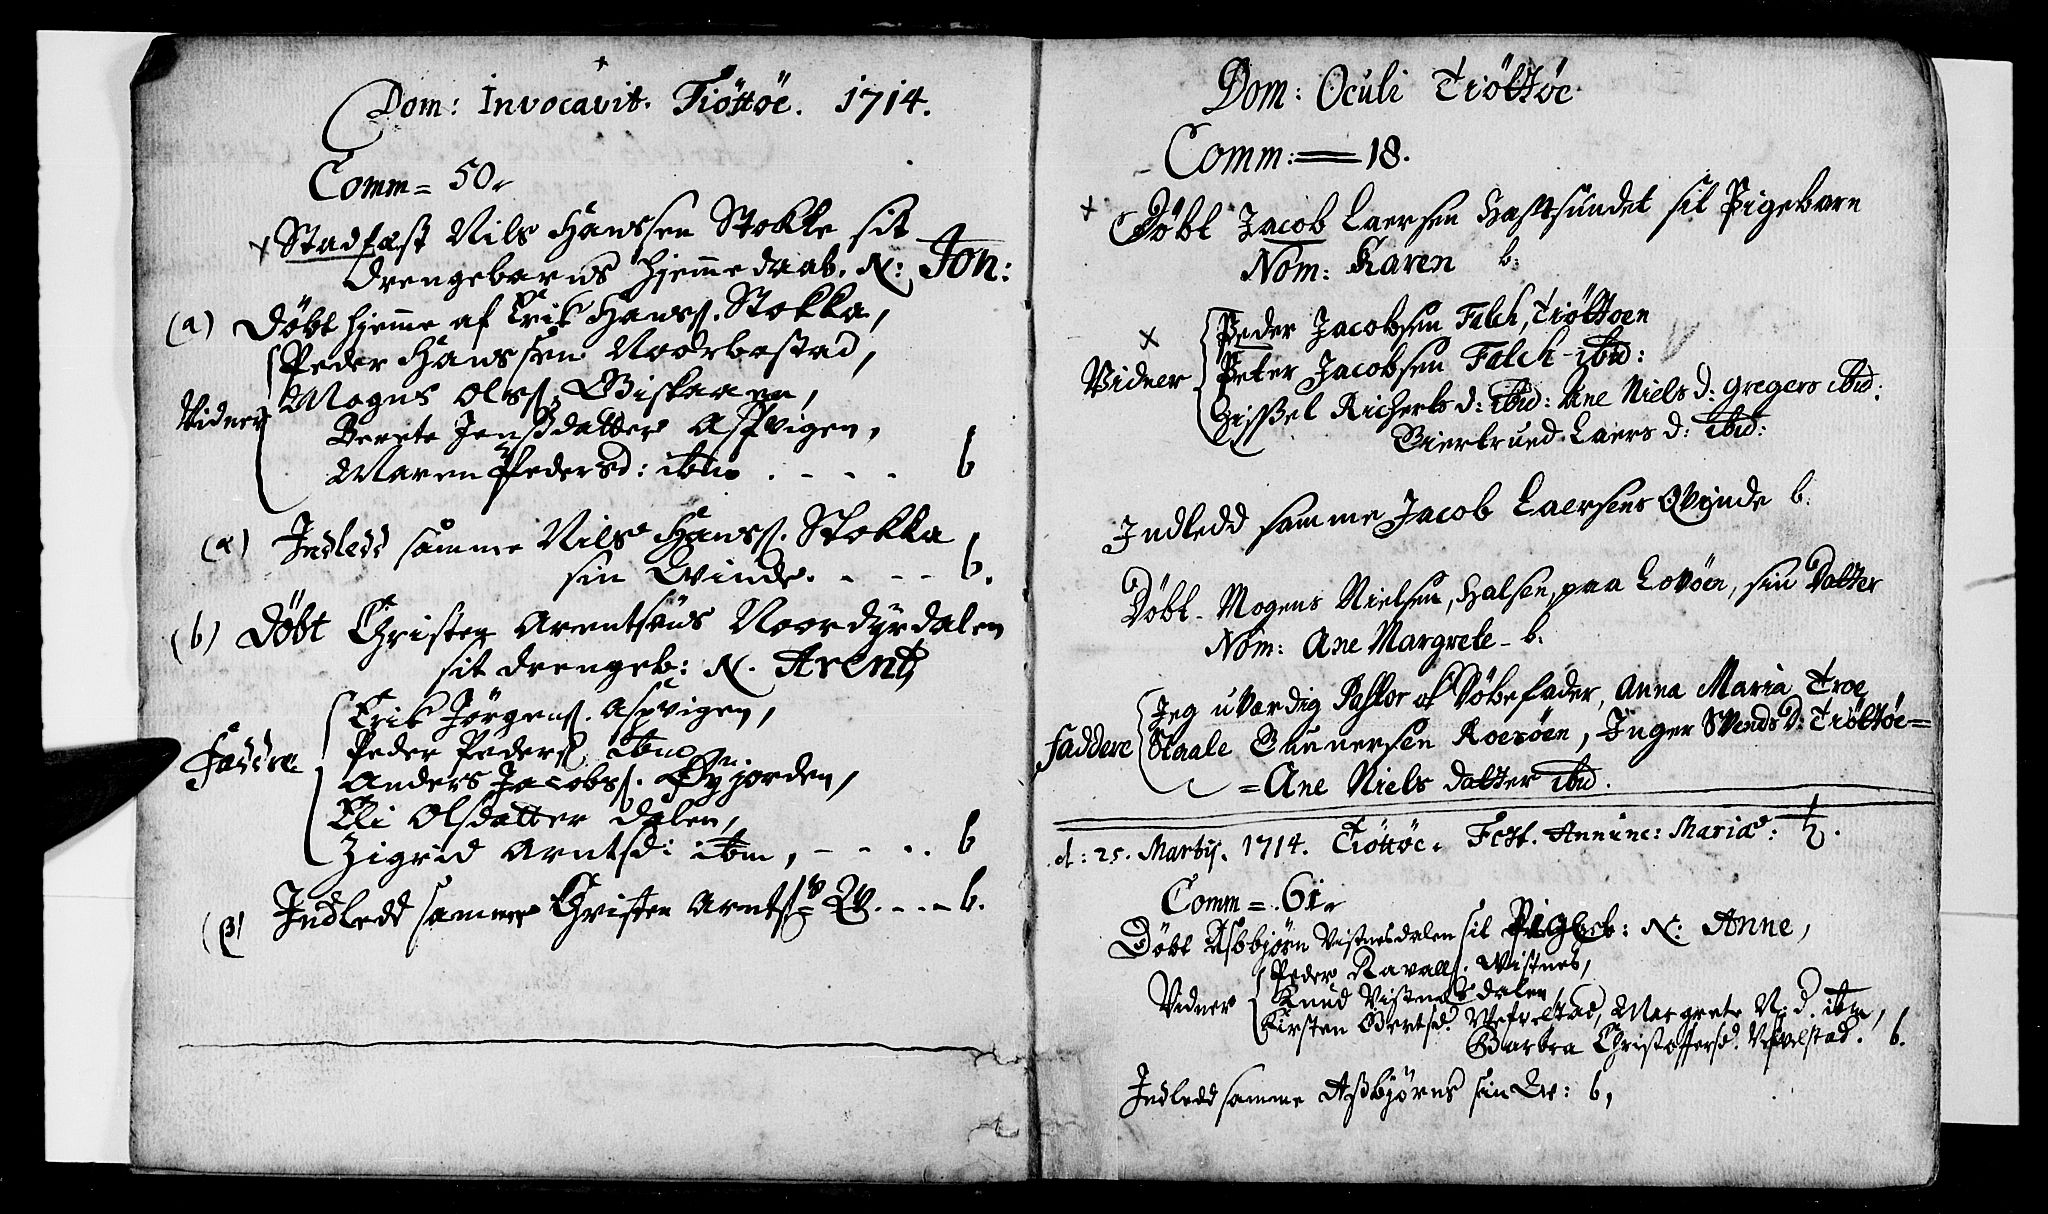 Dom: Invocavit. Tiöttöe. 1714.
Comm = 50.
Stadfæst Nils Hanssen Stokke sit
drengebarns hjemmedaab. N: Jon:
(a) Döbt hjemme af Erik Hanss. Stokka,
Peder Hanssen Noordbostad,
Mogns Olss. Biskaaen,
Vidner
Berete Jensdatter Aspvigen,
Maren Pedersd: ibm . - - - b
(α) Indledd samme Nils Hanss. Stokka
sin Qvinde. - - - b.
(b) Döbt Christen Arentsens Noordyrdalen
sit drengeb: N. Arent,
Erik Jörgens. Aspvigen,
Peder Peders. ibm
Faddre
Anders Jacobss. Øyjorden,
Eli Olsdatter dalen,
Zigrid Arntsd: ibm, - - . . b
(β) Indledd samme Christen Arnts. Q. - . - b.
Dom: Oculi Tiöttöe
Comm: = 18.
Döbt Jacob Laersen Hastsundet sit Pigebarn
Nom: Karen b:
Peder Jacobsen Falch, Tiöttoen
Peter Jacobsen Falch - ibid:
Vidner
Gissel Richerts d: ibid: Ane Niels d: Gregers ibid:
Giertrued Laers d: ibid:
Indledd samme Jacob Laersens Qvinde b.
Döbt - Mogens Nielsen, Halsen, paa Lovöen, sin Datter
Nom: Ane Margrete - b.
Jeg uværdig Pastor af Döbefader, Anna Maria Troe,
Faddere Staale Gunnersen Roesöen, Inger Svends D: Tiöttöe =
= Ane Niels datter ibid.
d: 25. Martij. 1714. Tiöttöe. Fest. Annunc: Mariæ: ♄.
Comm = .61.
Döbt Asbjörn Vistnesdalen sit Pigeb: N: Anne,
Peder Ravalds. Wistnes,
Vidner Knud Vistnesdalen,
Kirsten Bertsd. Vefvelstad, Margrete N. d. ibm,
Barbra Christoffersd. Vefvelstad. b.
Indledd samme Asbjörns sin Qv: b,